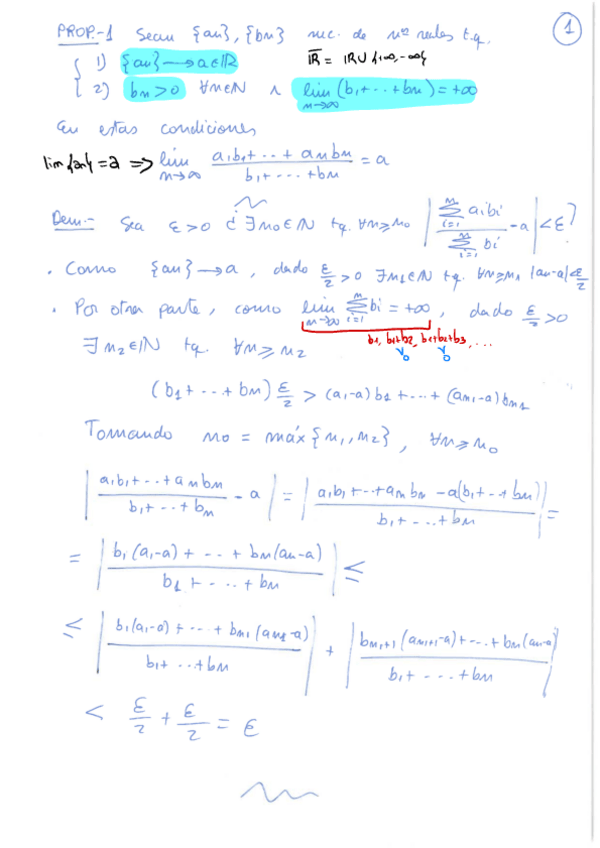 PROP.-1 Sean {an}, {bn} suc. de nos reales t.q. 1
1) {an} → a ∈ ℝ ℝ̅ = ℝ ∪ {+∞, -∞}
2) bn > 0 ∀n∈ℕ ∧ lim n→∞ (b1+...+bn) = +∞
En estas condiciones
lim {an} = a ⟹ lim n→∞ (a1b1+...+anbn)/(b1+...+bn) = a
Dem.- Sea ε>0 ¿∃ n0∈ℕ tq. ∀n≥n0 |∑_{i=1}^{n} aibi / ∑_{i=1}^{n} bi - a| < ε?
· Como {an} → a, dado ε/2 > 0 ∃n1∈ℕ tq. ∀n≥n1 |an-a|<ε/2
· Por otra parte, como lim n→∞ ∑_{i=1}^{n} bi = +∞, dado ε/2 > 0
b1, b1+b2, b1+b2+b3, ...
∃n2∈ℕ tq. ∀n≥n2
(b1+...+bn) ε/2 > (a1-a)b1+...+(an1-a)bn1
Tomando n0 = máx{n1,n2}, ∀n≥n0
|(a1b1+...+anbn)/(b1+...+bn) - a| = |(a1b1+...+anbn - a(b1+...+bn))/(b1+...+bn)| =
= |(b1(a1-a)+...+bn(an-a))/(b1+...+bn)| ≤
≤ |(b1(a1-a)+...+bn1(an1-a))/(b1+...+bn)| + |(bn1+1(an1+1-a)+...+bn(an-a))/(b1+...+bn)|
< ε/2 + ε/2 = ε